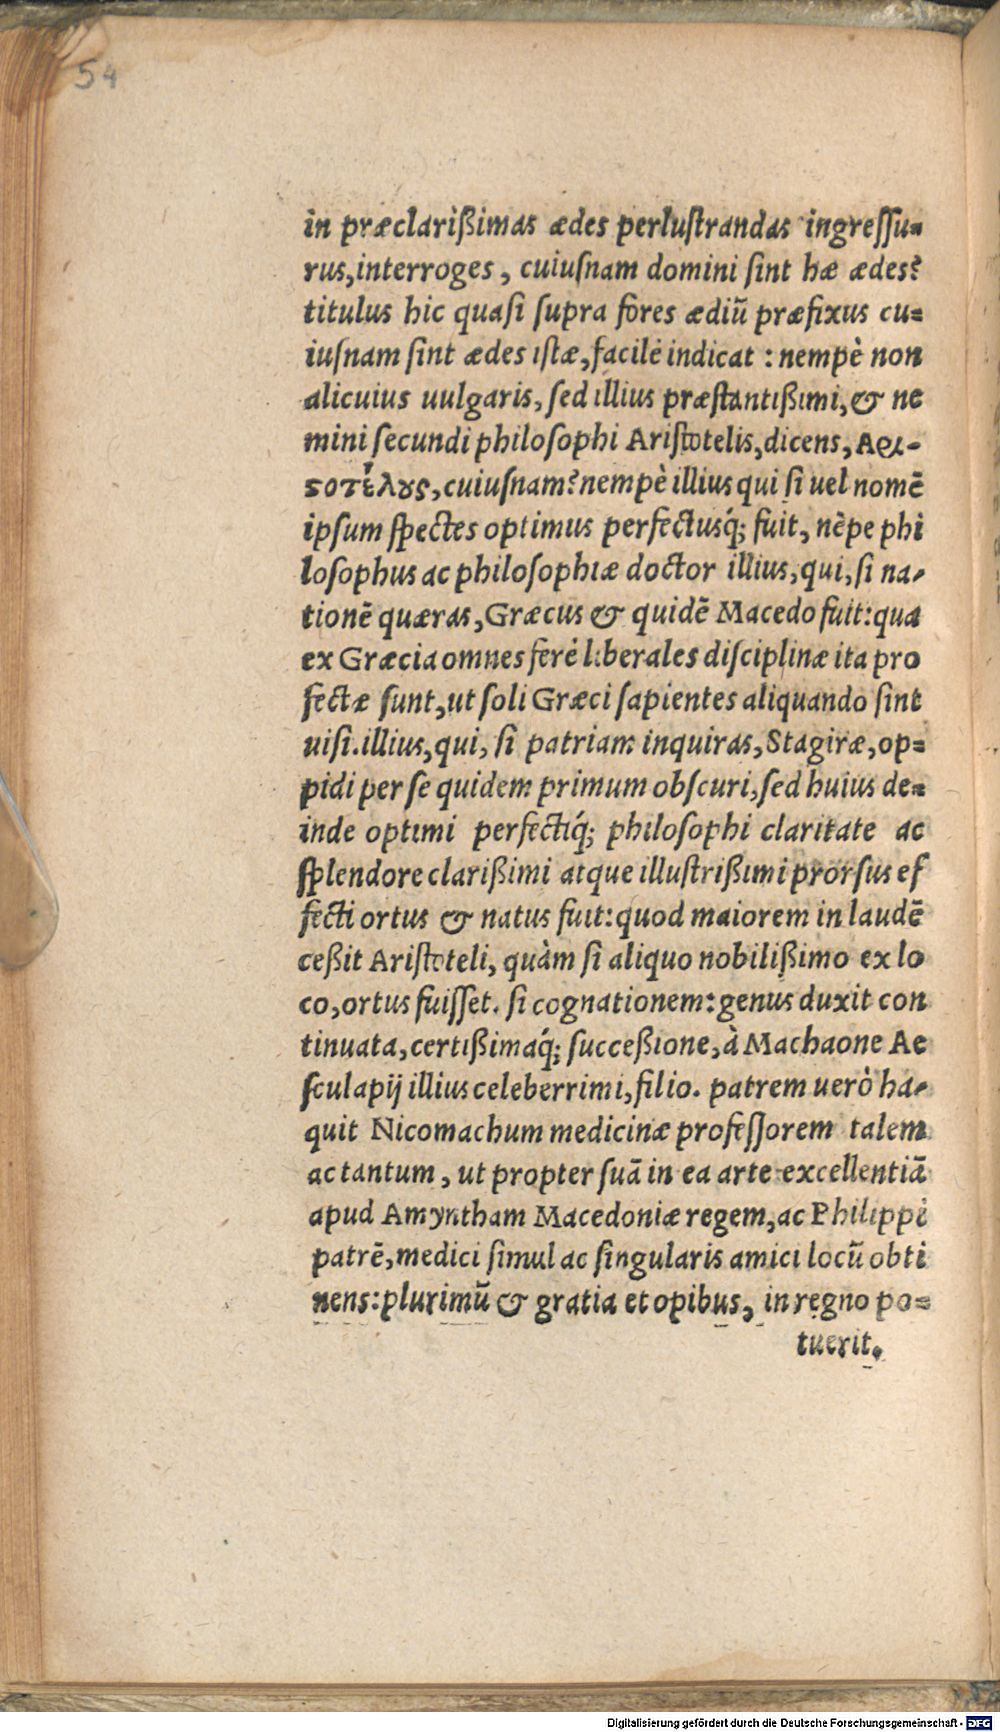 54
in præclarißimas ædes perlustrandas ingressu=
rus,interroges, cuiusnam domini sint hæ ædes?
titulus hic quasi supra fores ædiũ præfixus cu=
iusnam sint ædes istæ,facilè indicat : nempè non
alicuius uulgaris, sed illius præstantißimi,& ne
mini secundi philosophi Aristotelis,dicens, Αρι-
ϛοτέλȣς,cuiusnam? nempè illius qui si uel nomẽ
ipsum spectes optimus perfectusq́; fuit, nẽpe phi
losophus ac philosophiæ doctor illius,qui,si na-
tionẽ quæras, Græcus & quidẽ Macedo fuit:qua
ex Græcia omnes ferè liberales disciplinæ ita pro
fectæ sunt,ut soli Græci sapientes aliquando sint
uisi.illius,qui, si patriam inquiras, Stagiræ,op=
pidi per se quidem primum obscuri,sed huius de=
inde optimi perfectiq́; philosophi claritate ac
splendore clarißimi atque illustrißimi prorsus ef
fecti ortus & natus fuit:quod maiorem in laudẽ
ceßit Aristoteli, quàm si aliquo nobilißimo ex lo
co,ortus fuisset. si cognationem:genus duxit con
tinuata,certißimaq́; succeßione,à Machaone Ae
sculapij illius celeberrimi,filio. patrem uerò ha-
quit Nicomachum medicinæ professorem talem
ac tantum, ut propter suã in ea arte excellentiã
apud Amyntham Macedoniæ regem,ac Philippi
patrẽ,medici simul ac singularis amici locũ obti
nens:plurimũ & gratia et opibus, in regno po=
tuerit.
Digitalisierung gefördert durch die Deutsche Forschungsgemeinschaft - DFG